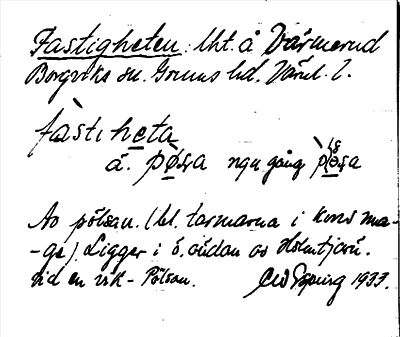 Fastigheten: lht. å Värmerud
Borgviks sn. Grums hd. Värml. l.
fàstiheta
á. pø̀sa ngn gång
Av pölsan. (bl. tarmarna i kons ma-
-ge). Ligger i ö. ändan av Holmtjärn.
vid en vik - Pölsan. 1933.